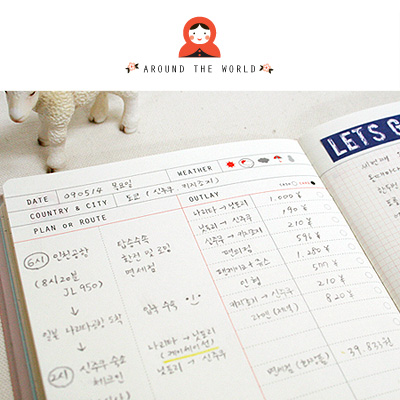 AROUND THE WORLD
LETS G
DATE 090514 목요일
WEATHER
COUNTRY & CITY 도쿄 (신주쿠, 키치죠지)
PLAN OR ROUTE
OUTLAY
CASH CARD
6시 인천공항
(8시20분
JL 950)
↓
일본 나리타공항 도착
↓
2시 신주쿠 숙소
체크인
탑승수속
환전 및 로밍
면세점
입국 수속
나리타 → 닛포리
(게이세이선)
닛포리 → 신주쿠
나리타 → 닛포리 1.000 ¥
닛포리 → 신주쿠 190 ¥
신주쿠 → 키치죠지 210 ¥
편의점 596 ¥
1.280 ¥
인형 500 ¥
키치죠지 → 신주쿠 210 ¥
라면 (저녁) 820 ¥
면세점 (화장품) 39.833원